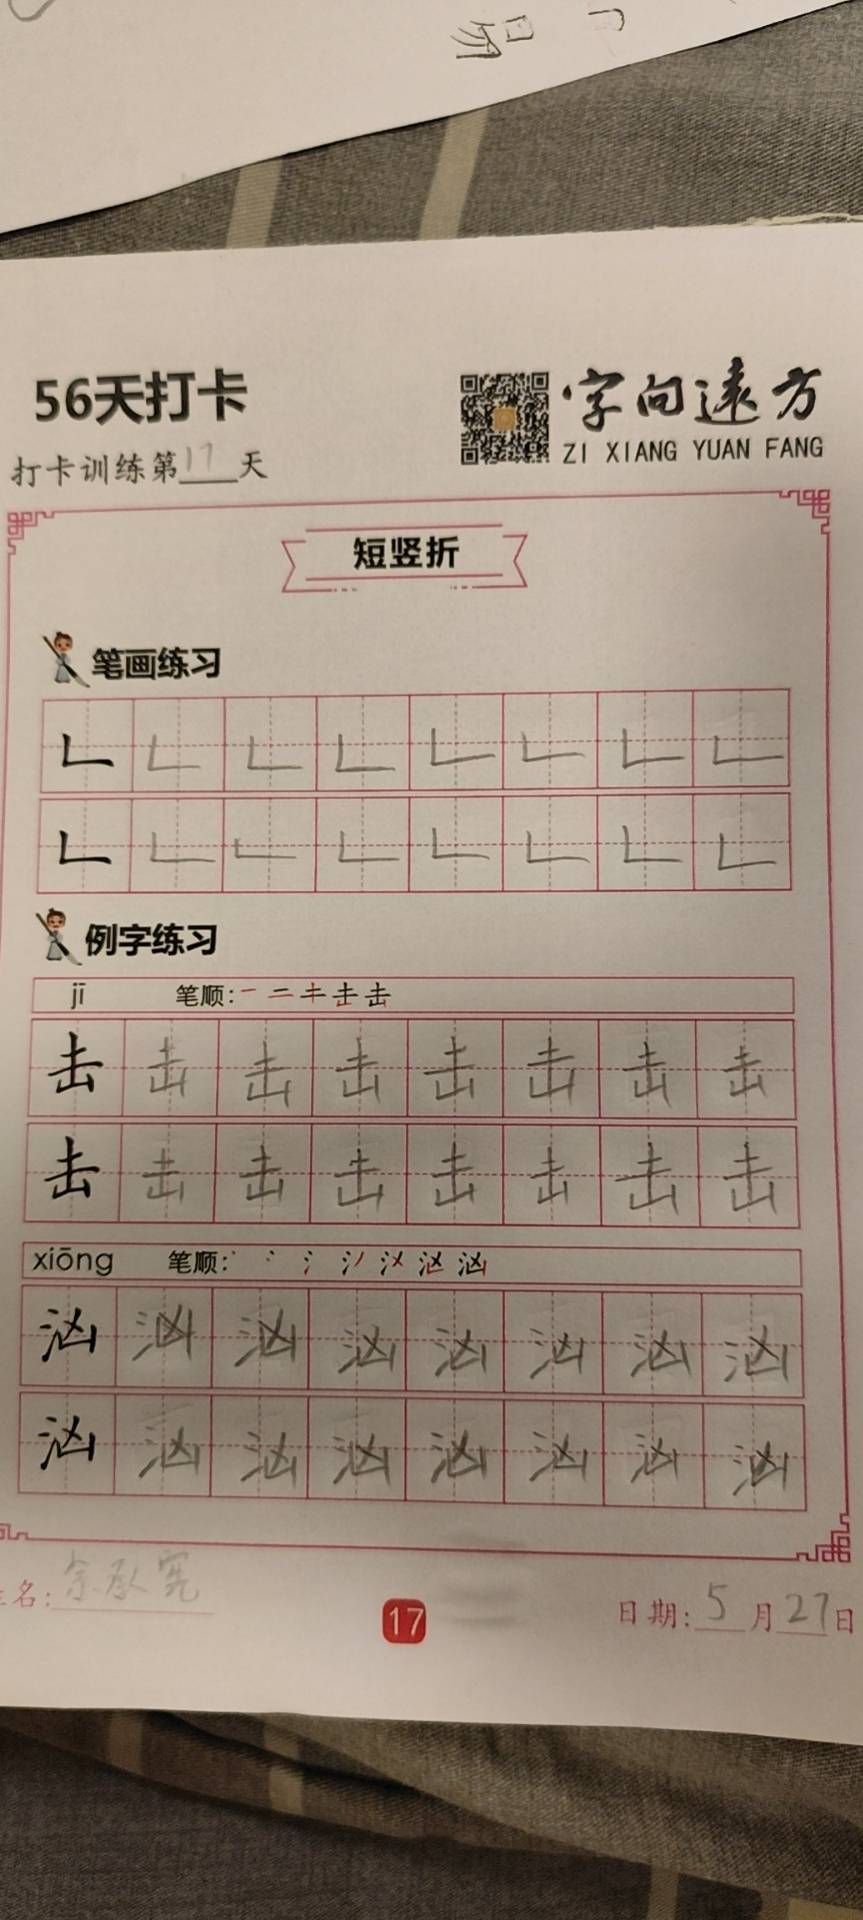 56天打卡
字向远方
ZI XIANG YUAN FANG
打卡训练第17天
短竖折
笔画练习
𠃊 𠃊 𠃊 𠃊 𠃊 𠃊 𠃊 𠃊
𠃊 𠃊 𠃊 𠃊 𠃊 𠃊 𠃊 𠃊
例字练习
jī 笔顺:
击 击 击 击 击 击 击 击
击 击 击 击 击 击 击 击
xiōng 笔顺:
汹 汹 汹 汹 汹 汹 汹 汹
汹 汹 汹 汹 汹 汹 汹 汹
名: 余承宪
17
日期: 5月27日